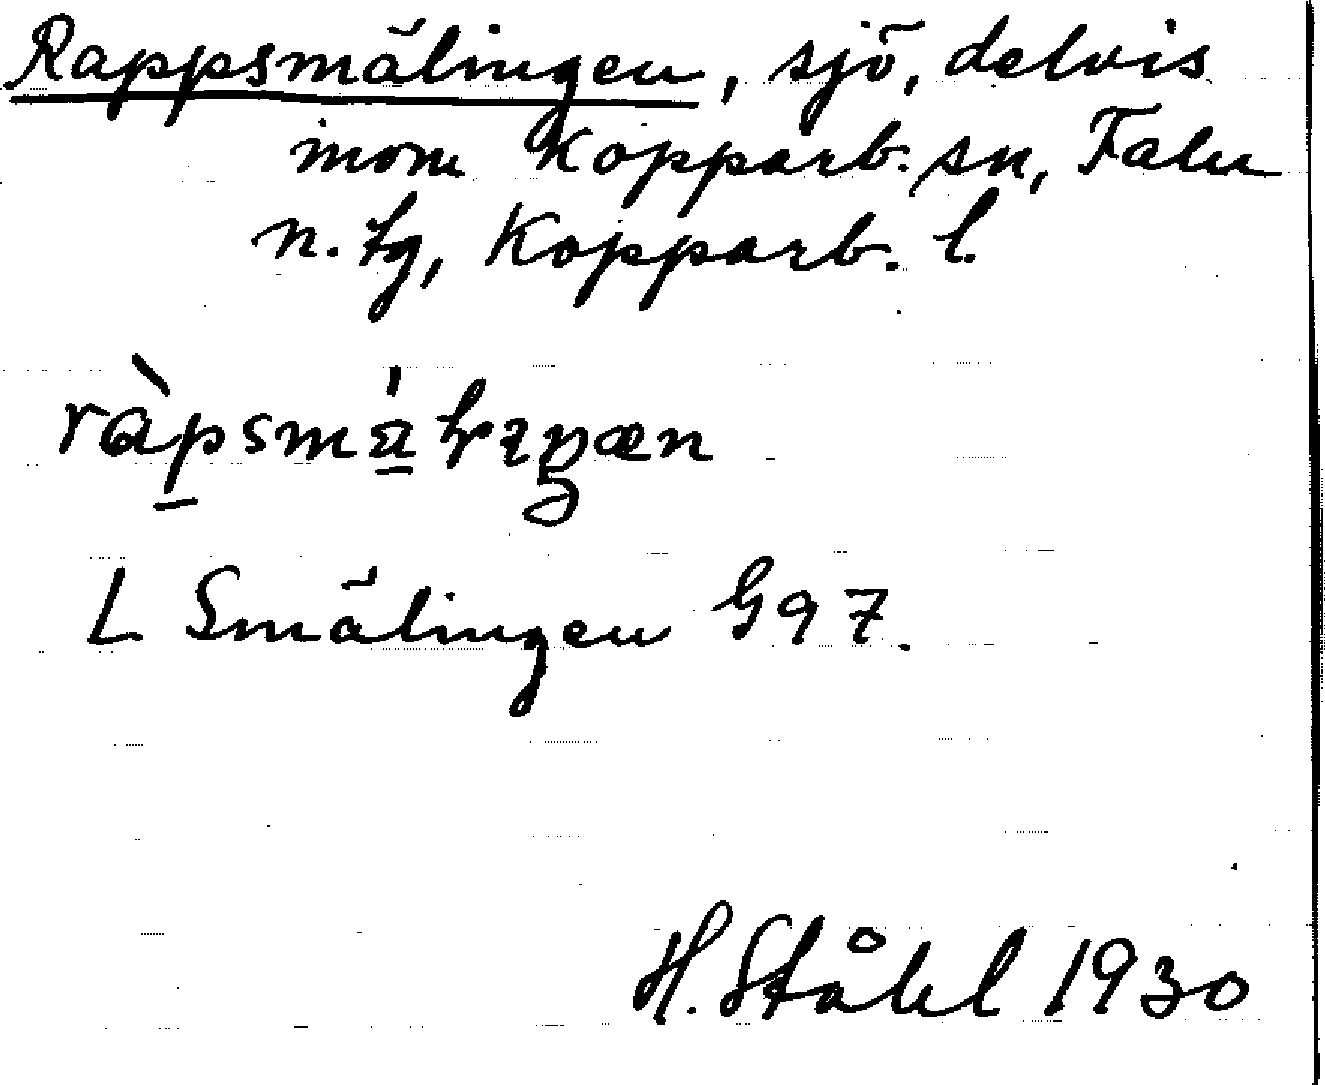 Rappsmälingen, sjö, delvis
inom Kopparb. sn, Falu
n. tg, Kopparb. l.
L Smälingen G97.
H. Ståhl 1930